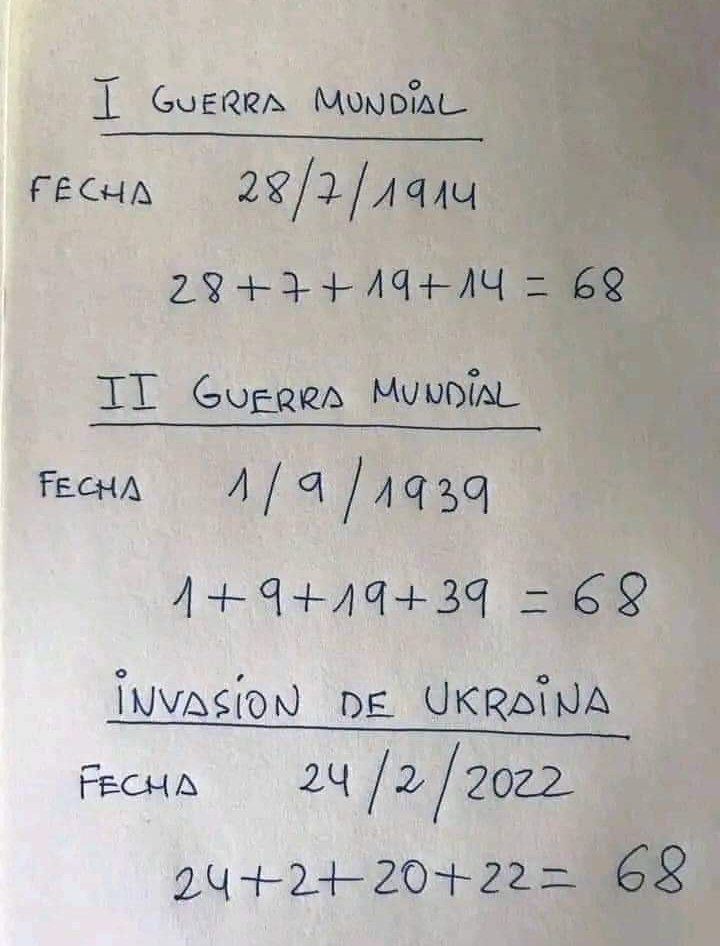 I GUERRA MUNDIAL
FECHA 28/7/1914
28+7+19+14 = 68
II GUERRA MUNDIAL
FECHA 1/9/1939
1+9+19+39 = 68
INVASION DE UKRAINA
FECHA 24/2/2022
24+2+20+22= 68